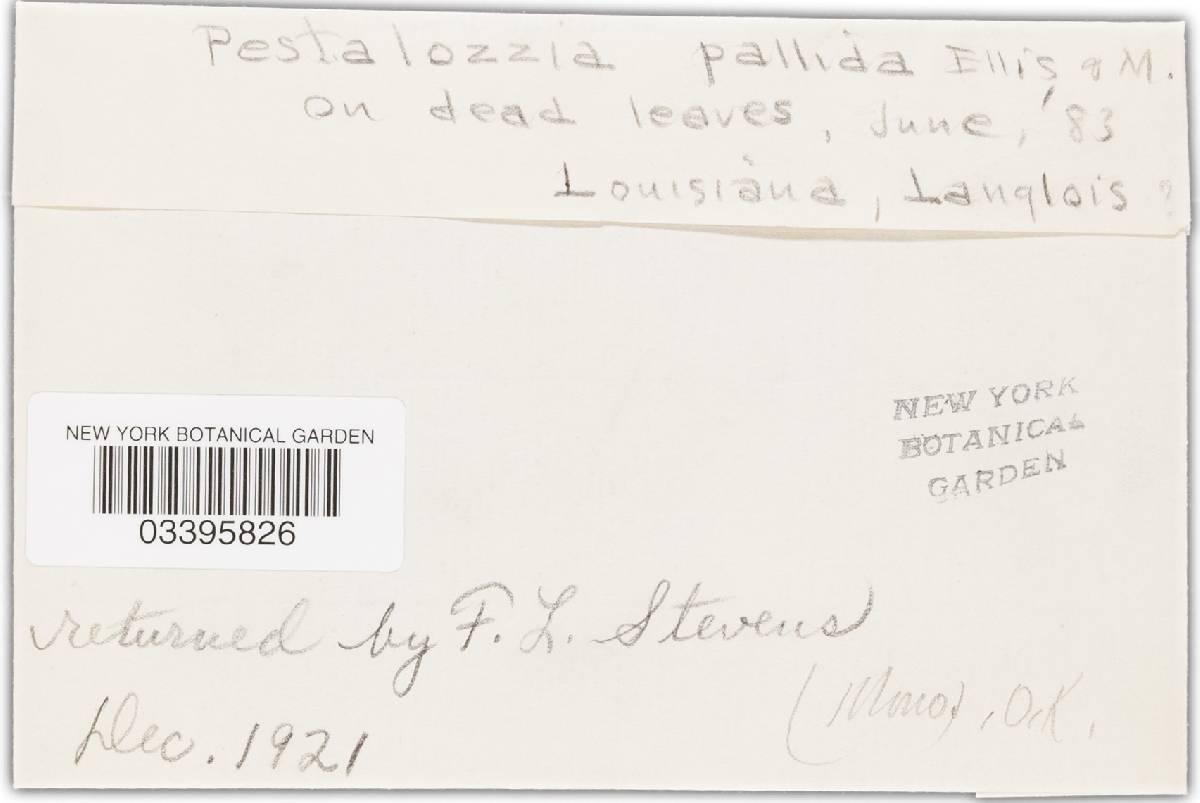 Pestalozzia pallida Ellis & M.
on dead leaves, June, '83
Louisiana, Langlois ?
NEW YORK
BOTANICAL
GARDEN
NEW YORK BOTANICAL GARDEN
03395826
returned by F. L. Stevens
Dec. 1921
O.K.